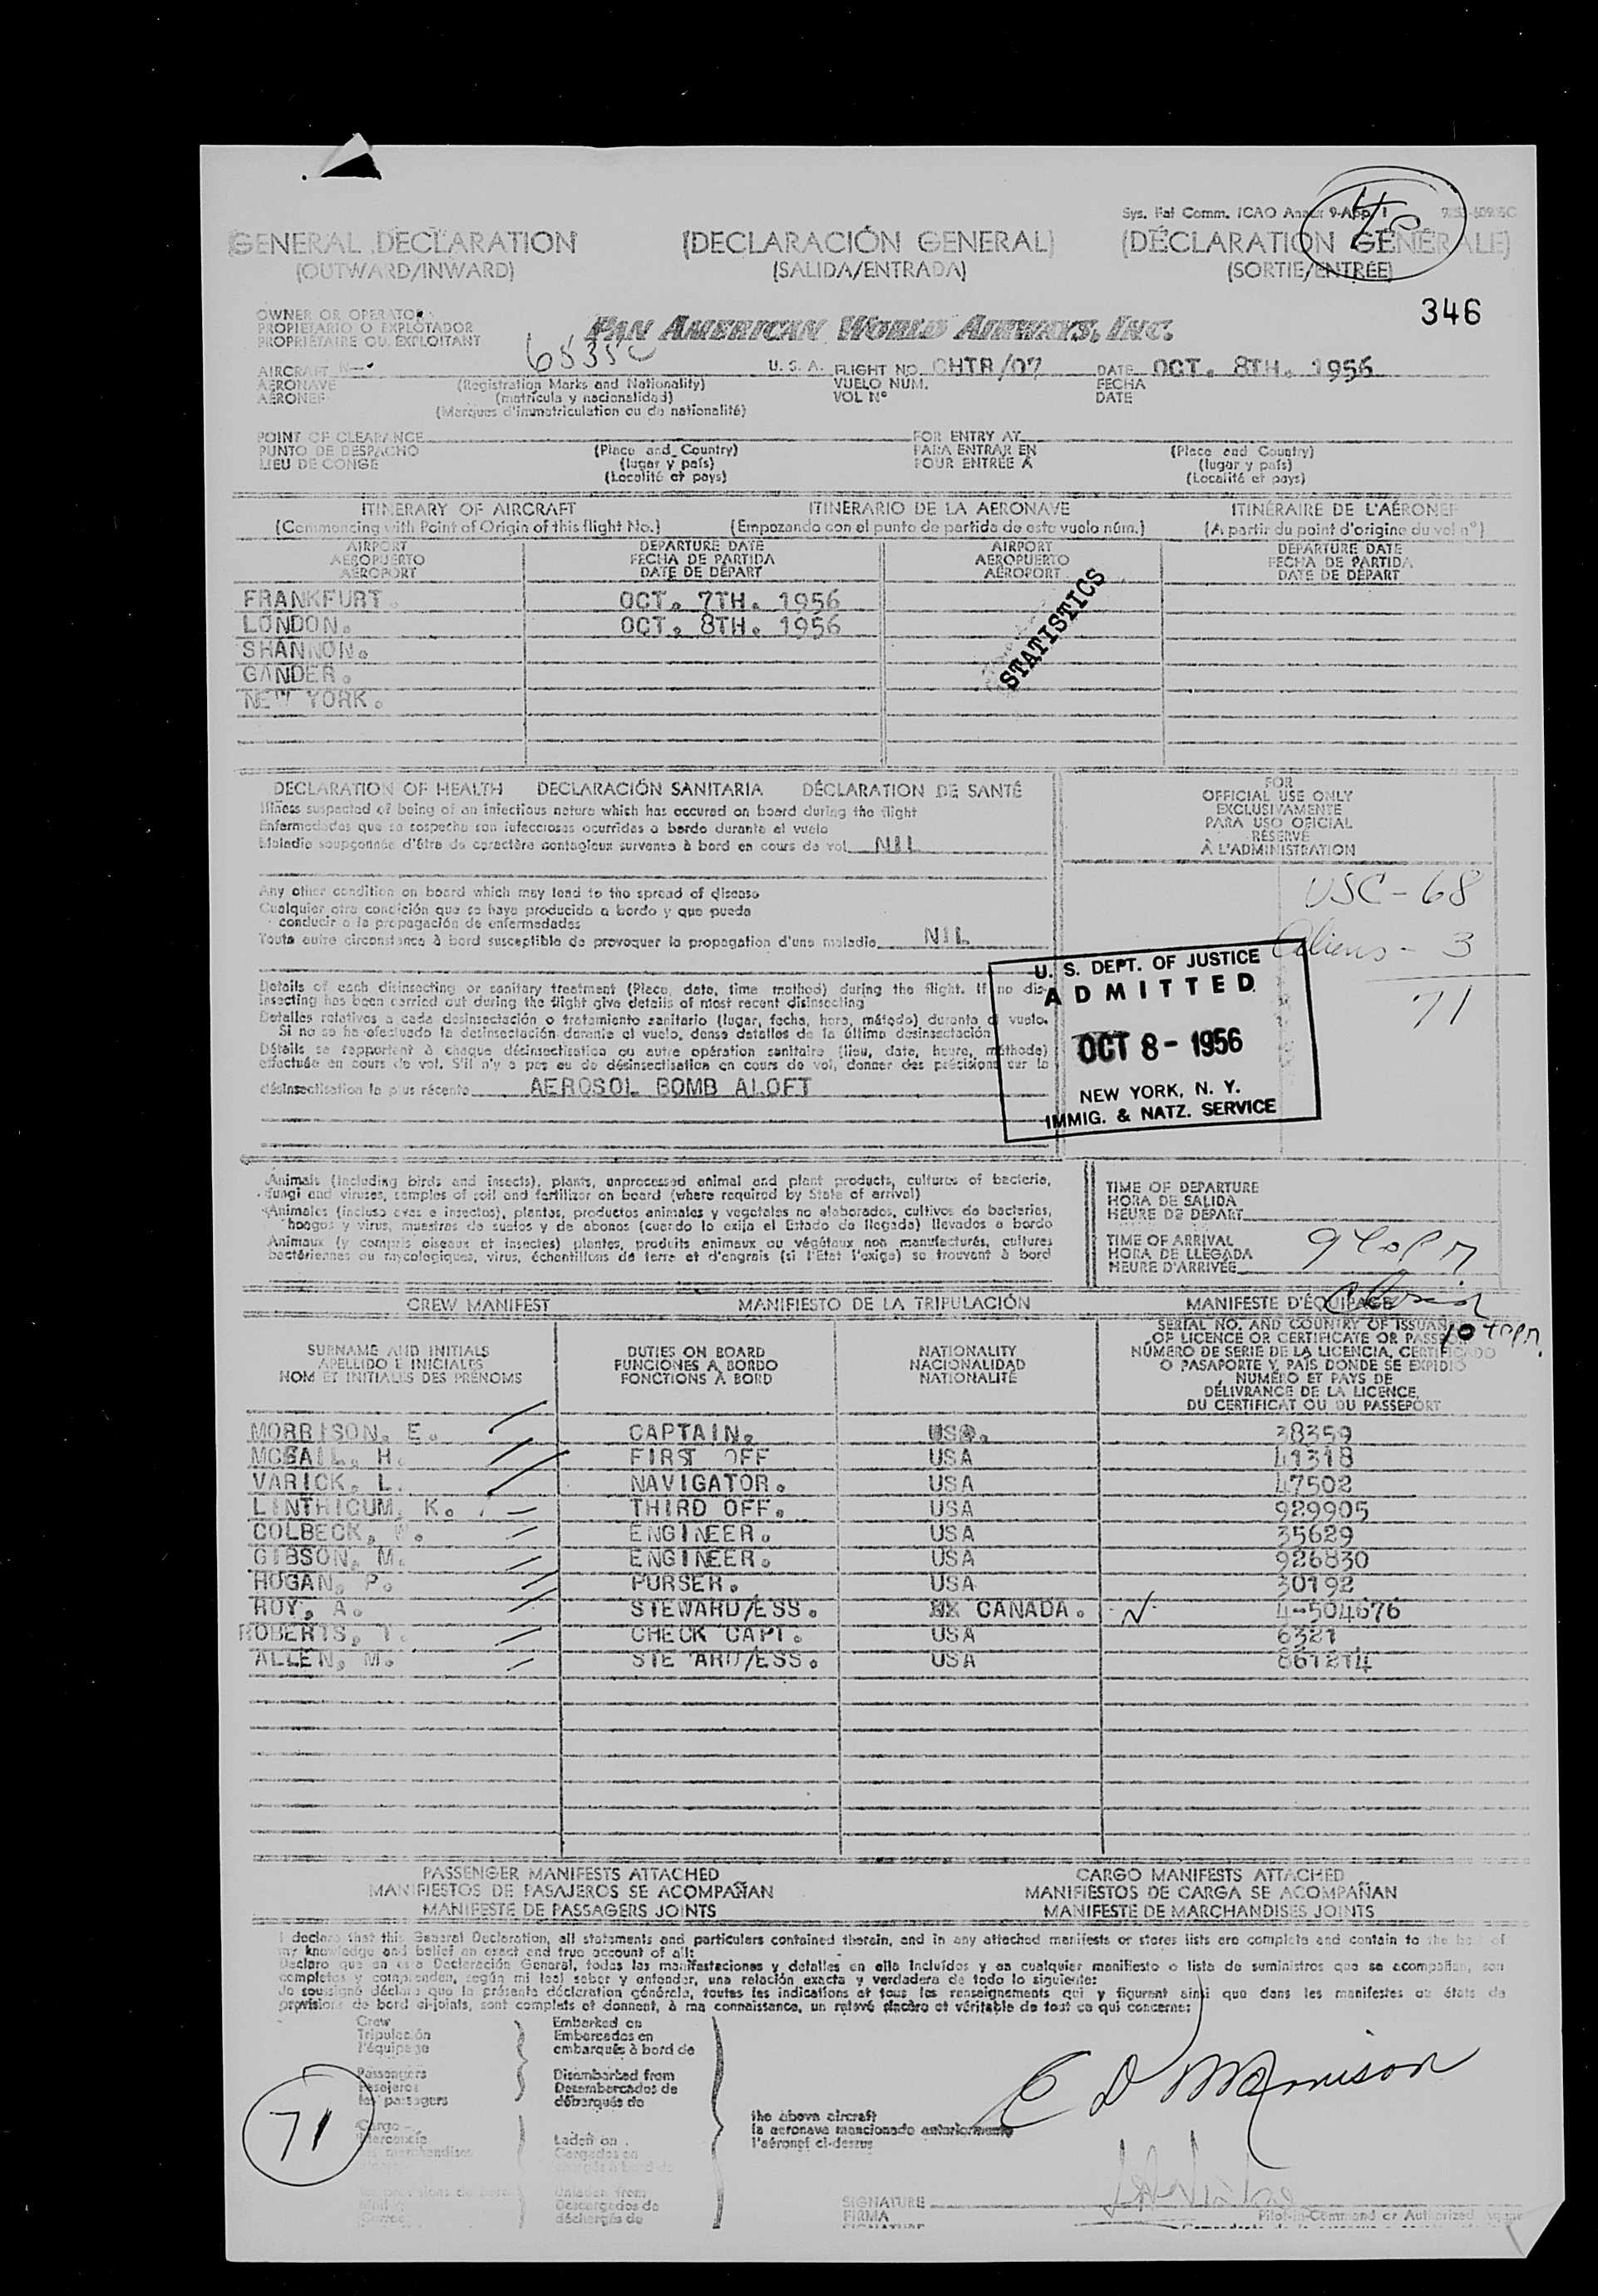 Sys. Fal Comm. ICAO Annex 9-App. 1
GENERAL DECLARATION (DECLARACIÓN GENERAL) (DÉCLARATION GÉNÉRALE)
(OUTWARD/INWARD) (SALIDA/ENTRADA) (SORTIE/ENTRÉE)
346
OWNER OR OPERATOR
PROPIETARIO O EXPLOTADOR
PROPRIÉTAIRE OU EXPLOITANT
PAN AMERICAN WORLD AIRWAYS, INC.
AIRCRAFT N- 6535C U. S. A. FLIGHT NO. CHTR/07 DATE OCT. 8TH. 1956
AERONAVE (Registration Marks and Nationality) VUELO NUM. FECHA
AÉRONEF (matrícula y nacionalidad) VOL Nº DATE
(Marques d'immatriculation ou de nationalité)
POINT OF CLEARANCE FOR ENTRY AT
PUNTO DE DESPACHO (Place and Country) PARA ENTRAR EN (Place and Country)
LIEU DE CONGE (lugar y país) POUR ENTRÉE À (lugar y país)
(Localité et pays) (Localité et pays)
ITINERARY OF AIRCRAFT ITINERARIO DE LA AERONAVE ITINÉRAIRE DE L'AÉRONEF
(Commencing with Point of Origin of this flight No.) (Empezando con el punto de partida de este vuelo núm.) (A partir du point d'origine du vol nº)
AIRPORT DEPARTURE DATE AIRPORT DEPARTURE DATE
AEROPUERTO FECHA DE PARTIDA AEROPUERTO FECHA DE PARTIDA
AÉROPORT DATE DE DÉPART AÉROPORT DATE DE DÉPART
FRANKFURT. OCT. 7TH. 1956
LONDON. OCT. 8TH. 1956
SHANNON.
GANDER.
NEW YORK.
STATISTICS
DECLARATION OF HEALTH DECLARACIÓN SANITARIA DÉCLARATION DE SANTÉ
Illness suspected of being of an infectious nature which has occured on board during the flight
Enfermedades que se sospecha son infecciosas ocurridas a bordo durante el vuelo
Maladie soupçonnée d'être de caractère contagieux survenue à bord en cours de vol NIL
Any other condition on board which may lead to the spread of disease
Cualquier otra condición que se haya producido a bordo y que pueda
conducir a la propagación de enfermedades
Toute autre circonstance à bord susceptible de provoquer la propagation d'une maladie NIL
Details of each disinsecting or sanitary treatment (Place, date, time method) during the flight. If no dis-
insecting has been carried out during the flight give details of most recent disinsecting
Detalles relativos a cada desinsectación o tratamiento sanitario (lugar, fecha, hora, método) durante el vuelo.
Si no se ha efectuado la desinsectación durante el vuelo, dense detalles de la última desinsectación
Détails se rapportant à chaque désinsectisation ou autre opération sanitaire (lieu, date, heure, méthode)
effectuée en cours de vol. S'il n'y a pas eu de désinsectisation en cours de vol, donner des précisions sur la
désinsectisation la plus récente AEROSOL BOMB ALOFT
FOR
OFFICIAL USE ONLY
EXCLUSIVAMENTE
PARA USO OFICIAL
RÉSERVÉ
À L'ADMINISTRATION
USC - 68
Aliens - 3
71
U. S. DEPT. OF JUSTICE
ADMITTED
OCT 8 - 1956
NEW YORK, N. Y.
IMMIG. & NATZ. SERVICE
Animals (including birds and insects), plants, unprocessed animal and plant products, cultures of bacteria,
fungi and viruses, samples of soil and fertilizer on board (where required by State of arrival)
Animales (incluso aves e insectos), plantas, productos animales y vegetales no elaborados, cultivos de bacterias,
hongos y virus, muestras de suelos y de abonos (cuando lo exija el Estado de llegada) llevados a bordo
Animaux (y compris oiseaux et insectes) plantes, produits animaux ou végétaux non manufacturés, cultures
bactériennes ou mycologiques, virus, échantillons de terre et d'engrais (si l'Etat l'exige) se trouvant à bord
TIME OF DEPARTURE
HORA DE SALIDA
HEURE DE DÉPART
TIME OF ARRIVAL
HORA DE LLEGADA
HEURE D'ARRIVÉE
CREW MANIFEST MANIFIESTO DE LA TRIPULACIÓN MANIFESTE D'ÉQUIPAGE
SURNAME AND INITIALS
APELLIDO E INICIALES
NOM ET INITIALES DES PRÉNOMS
DUTIES ON BOARD
FUNCIONES A BORDO
FONCTIONS À BORD
NATIONALITY
NACIONALIDAD
NATIONALITÉ
SERIAL NO. AND COUNTRY OF ISSUANCE
OF LICENCE OR CERTIFICATE OR PASSPORT
NÚMERO DE SERIE DE LA LICENCIA, CERTIFICADO
O PASAPORTE Y PAÍS DONDE SE EXPIDIÓ
NUMÉRO ET PAYS DE
DÉLIVRANCE DE LA LICENCE,
DU CERTIFICAT OU DU PASSEPORT
MORRISON, E. CAPTAIN. USA. 38359
H. FIRST OFF USA 41318
VARICK, L. NAVIGATOR. USA 47502
LINTHICUM, K. THIRD OFF. USA 929905
COLBECK, ENGINEER. USA 35629
GIBSON, M. ENGINEER. USA 926830
HOGAN, P. PURSER. USA 30192
ROY, A. STEWARD/ESS. CANADA. 4-504676
ROBERTS, T. CHECK CAPT. USA 6321
ALLEN, M. STEWARD/ESS. USA 861214
PASSENGER MANIFESTS ATTACHED CARGO MANIFESTS ATTACHED
MANIFIESTOS DE PASAJEROS SE ACOMPAÑAN MANIFIESTOS DE CARGA SE ACOMPAÑAN
MANIFESTE DE PASSAGERS JOINTS MANIFESTE DE MARCHANDISES JOINTS
I declare that this General Declaration, all statements and particulars contained therein, and in any attached manifests or stores lists are complete and contain to the best of
my knowledge and belief an exact and true account of all:
Declaro que en esta Declaración General, todas las manifestaciones y detalles en ella incluídos y en cualquier manifiesto o lista de suministros que se acompañan, son
completos y comprenden, según mi leal saber y entender, una relación exacta y verdadera de todo lo siguiente:
Je soussigné déclare que la présente déclaration générale, toutes les indications et tous les renseignements qui y figurent ainsi que dans les manifestes ou états de
provisions de bord ci-joints, sont complets et donnent, à ma connaissance, un relevé sincère et véritable de tout ce qui concerne:
Crew
Tripulación
l'équipage
Embarked on
Embarcados en
embarqués à bord de
Passengers
Pasajeros
les passagers
Disembarked from
Desembarcados de
débarqués de
Cargo
Mercancía
marchandises
Laden on
Cargados en
Unladen from
Descargados de
déchargés de
the above aircraft
la aeronave mencionada anteriormente
l'aéronef ci-dessus
71
E D Morrison
SIGNATURE
FIRMA
SIGNATURE
Pilot-in-Command or Authorized Agent